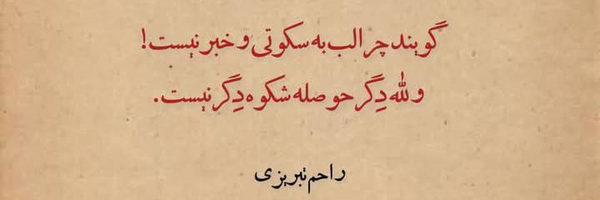 گویند چرا لب به سکوتی و خبر نیست!
وللّه دِگر حوصله شکوه دِگر نیست.
راحم تبریزی